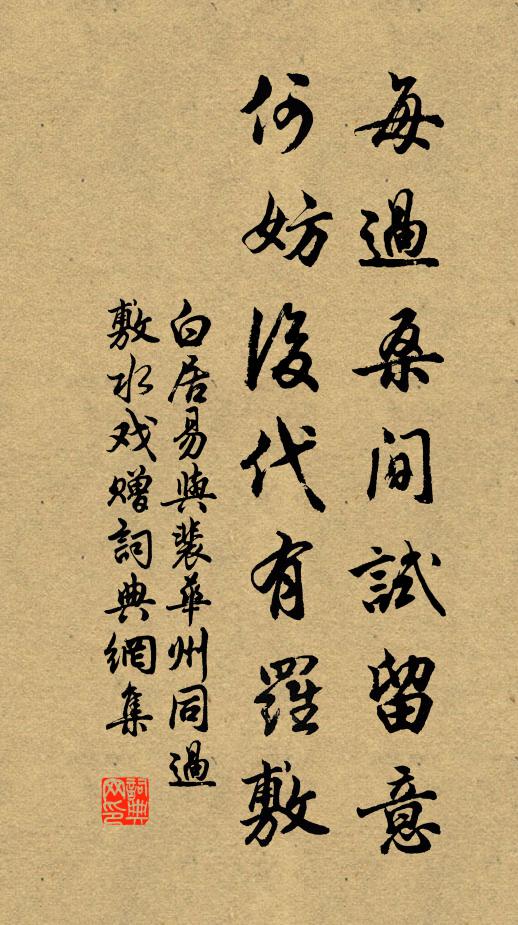 每過桑間試留意
何妨後代有羅敷
白居易與裴華州同過
敷水戏贈詞典網集
詞典
网印